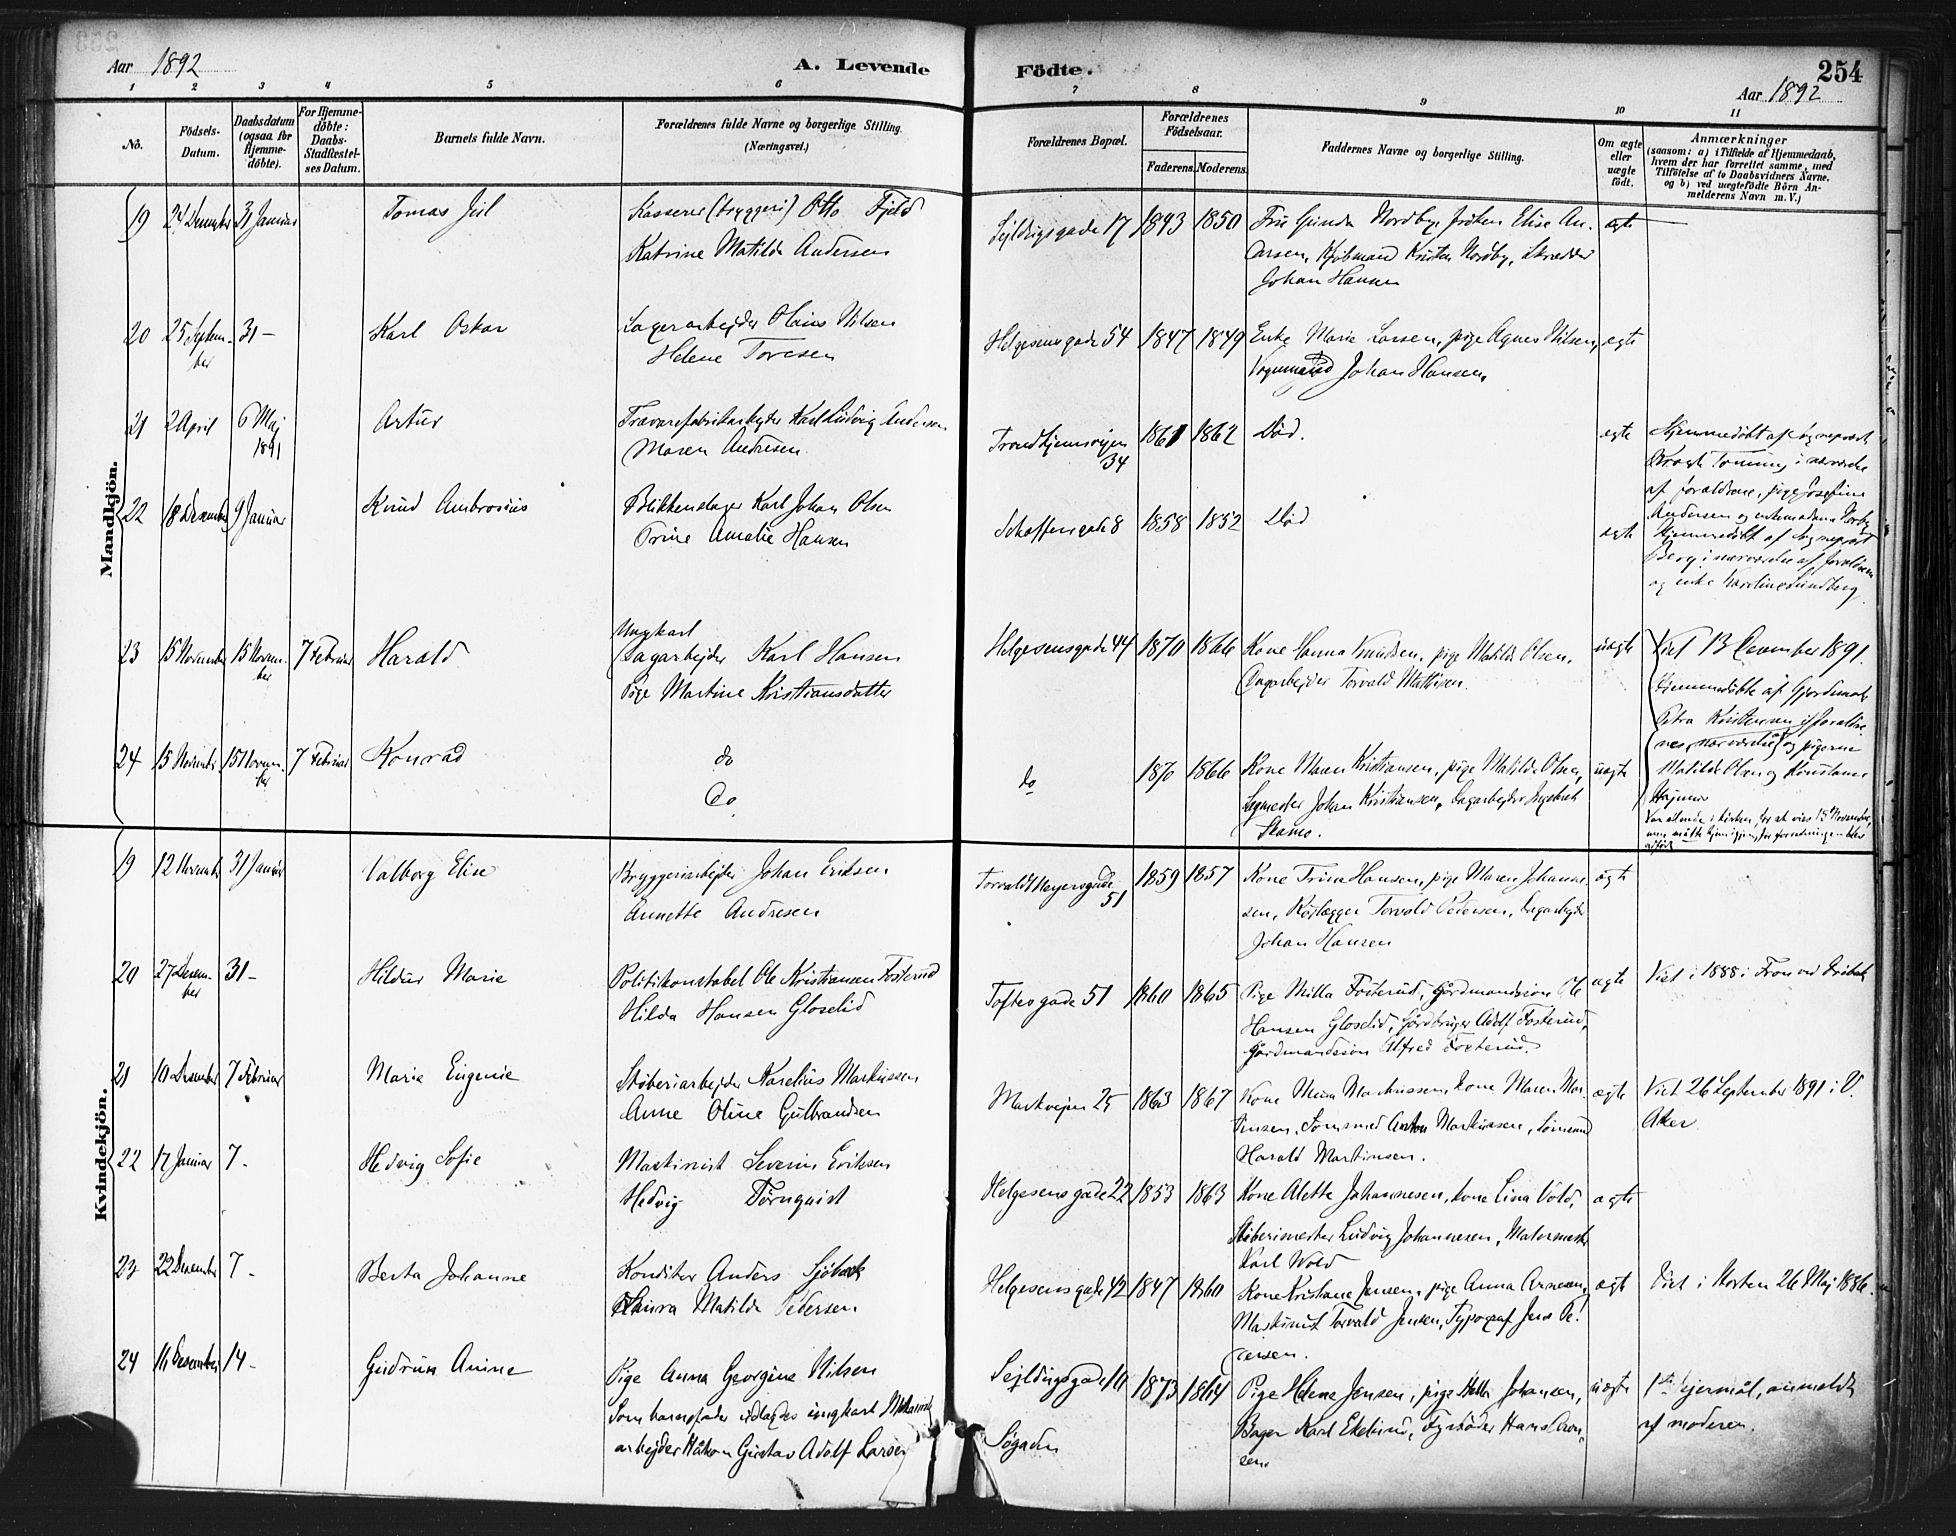 Aar 1892 A. Levende Födte. 254
Aar 1892
1 2 3 4 5 6 7 8 9 10 11
No. Födsels-Datum. Daabsdatum (ogsaa for Hjemme-döbte). For Hjemme-döbte: Daabs-Stadfæstel-ses Datum. Barnets fulde Navn. Forældrenes fulde Navne og borgerlige Stilling. (Næringsvei.) Forældrenes Bopæl. Forældrenes Födselsaar. Faderens. Moderens. Faddernes Navne og borgerlige Stilling. Om ægte eller uægte født. Anmærkninger (saasom: a) i Tilfælde af Hjemmedaab, hvem der har forrettet samme, med Tilföielse af to Daabsvidners Navne, og b) ved uægtefödte Börn Anmelderens Navn m. V.)
Mandkjön.
19 24 Desember 31 Januar Tomas Jul Kasserer (bryggeri) Otto Fjeld Sejldugsgade 17 1843 1850 Fru Gunda Nordby, frøken Elise An- ægte
Katrine Matilde Andersen Carsen, Kjøbmand Kristen Nordby, Skrædder
Johan Hansen
20 25 Septem-ber 31 – Karl Oskar Lagerarbejder Olaus Nilsen Helgesensgade 54 1847 1849 Enke Marie Larsen, pige Agnes Nilsen, ægte
Helene Toresen Vognmand Johan Hansen.
21 2 April 6 Maj 1891 Artur Trævarefabrikarbejder Karl Ludvig Andersen Trondhjemsvejen 34 1861 1862 Død. ægte Hjemmedøbt af sogneprest
Maren Andresen Tonning i nærværelse
af forældrene, pige Josefine
Andersen og enkemadam Norby
22 18 Desember 9 Januar Knud Ambrosius Blikkenslager Karl Johan Olsen Schaffersgade 8 1858 1852 Død ægte Hjemmedøbt af sogneprest
Trine Amalie Hansen Berg i nærværelse af forældrene
og enke Karoline Lundberg.
23 15 November 15 Novem-ber 7 Februar Harald Ungkarl
Lagarbejder Karl Hansen Helgesensgade 44 1870 1866 Kone Hanna Knudsen, pige Matilde Olsen, uægte Viet 13 Desember 1891.
Pige Martine Kristiansdatter Lagarbejder Torvald Mathisen. Hjemmedøbte af Gjordmoder
Petra Kristensen i forældre-
nes nærværelse og pigerne
24 15 November 15 Novem-ber 7 Februar Konrad do do 1870 1866 Kone Maren Kristiansen, pige Matilde Olsen, uægte Matilde Olsen og Konstanse
Do. Johan Kristiansen, Lagarbejder
Kvindekjön.
19 12 November 31 Januar Valborg Elise Bryggeriarbejder Johan Eriksen Torvald Meyersgade 51 1859 1857 Kone Trine Hansen, pige Maren Johanne- ægte
Annette Andresen sen, Rørlægger Torvald Pedersen, Lagarbejder
Johan Hansen
20 27 Desem-ber 31 – Hildur Marie Politikonstabel Ole Kristiansen Fosterud Toftesgade 51 1860 1865 Pige Milla Fosterud, Gårdmandssøn Ole ægte Viet i 1888 i Fron ved Drøbak
Hilda Hansen Gloslid Hansen Gloslid, Gårdbruger Adolf Fosterud,
Gårdmandssøn Alfred Fosterud.
21 10 Desember 7 Februar Marie Eugenie Støberiarbejder Karelius Markussen Markvejen 25 1863 1867 Kone Mina Markussen, kone Maren Mar- ægte Viet 26 September 1891 i V.
Anne Oline Gulbrandsen tinsen, Anton Markussen, Aker.
Harald Martinsen.
22 17 Januar 7 – Hedvig Sofie Maskinist Severin Eriksen Helgesens gade 22 1853 1863 Kone Alette Johannesen, kone Lina Vold, ægte
Hedvig Törnquist Støberimester Ludvig Johannesen, Malermester
Karl Wold
23 22 Desember 7 – Berta Johanne Konditor Anders Sjöbeck Helgesensgade 42 1847 1860 Kone Kristiane Jensen, pige Anna Arnesen, ægte Viet i Horten 26 Maj 1886.
Laura Matilde Pedersen Maskinist Torvald Jensen, Typograf Jens Pe-
tersen.
24 11 Desember 14 – Gudrun Anine Pige Anna Georgine Nilsen Sejldugsgade 10 1873 1864 Pige Helene Jensen, pige Hella Johansen, uægte 1ste lejermål, anmeldt
Som barnefader udlagdes ungkarl Mekanisk Søgaden Bager Karl Ekelund, Fyrbøder Hans Lar- af moderen.
arbejder Håkon Gustav Adolf Larsen sen.